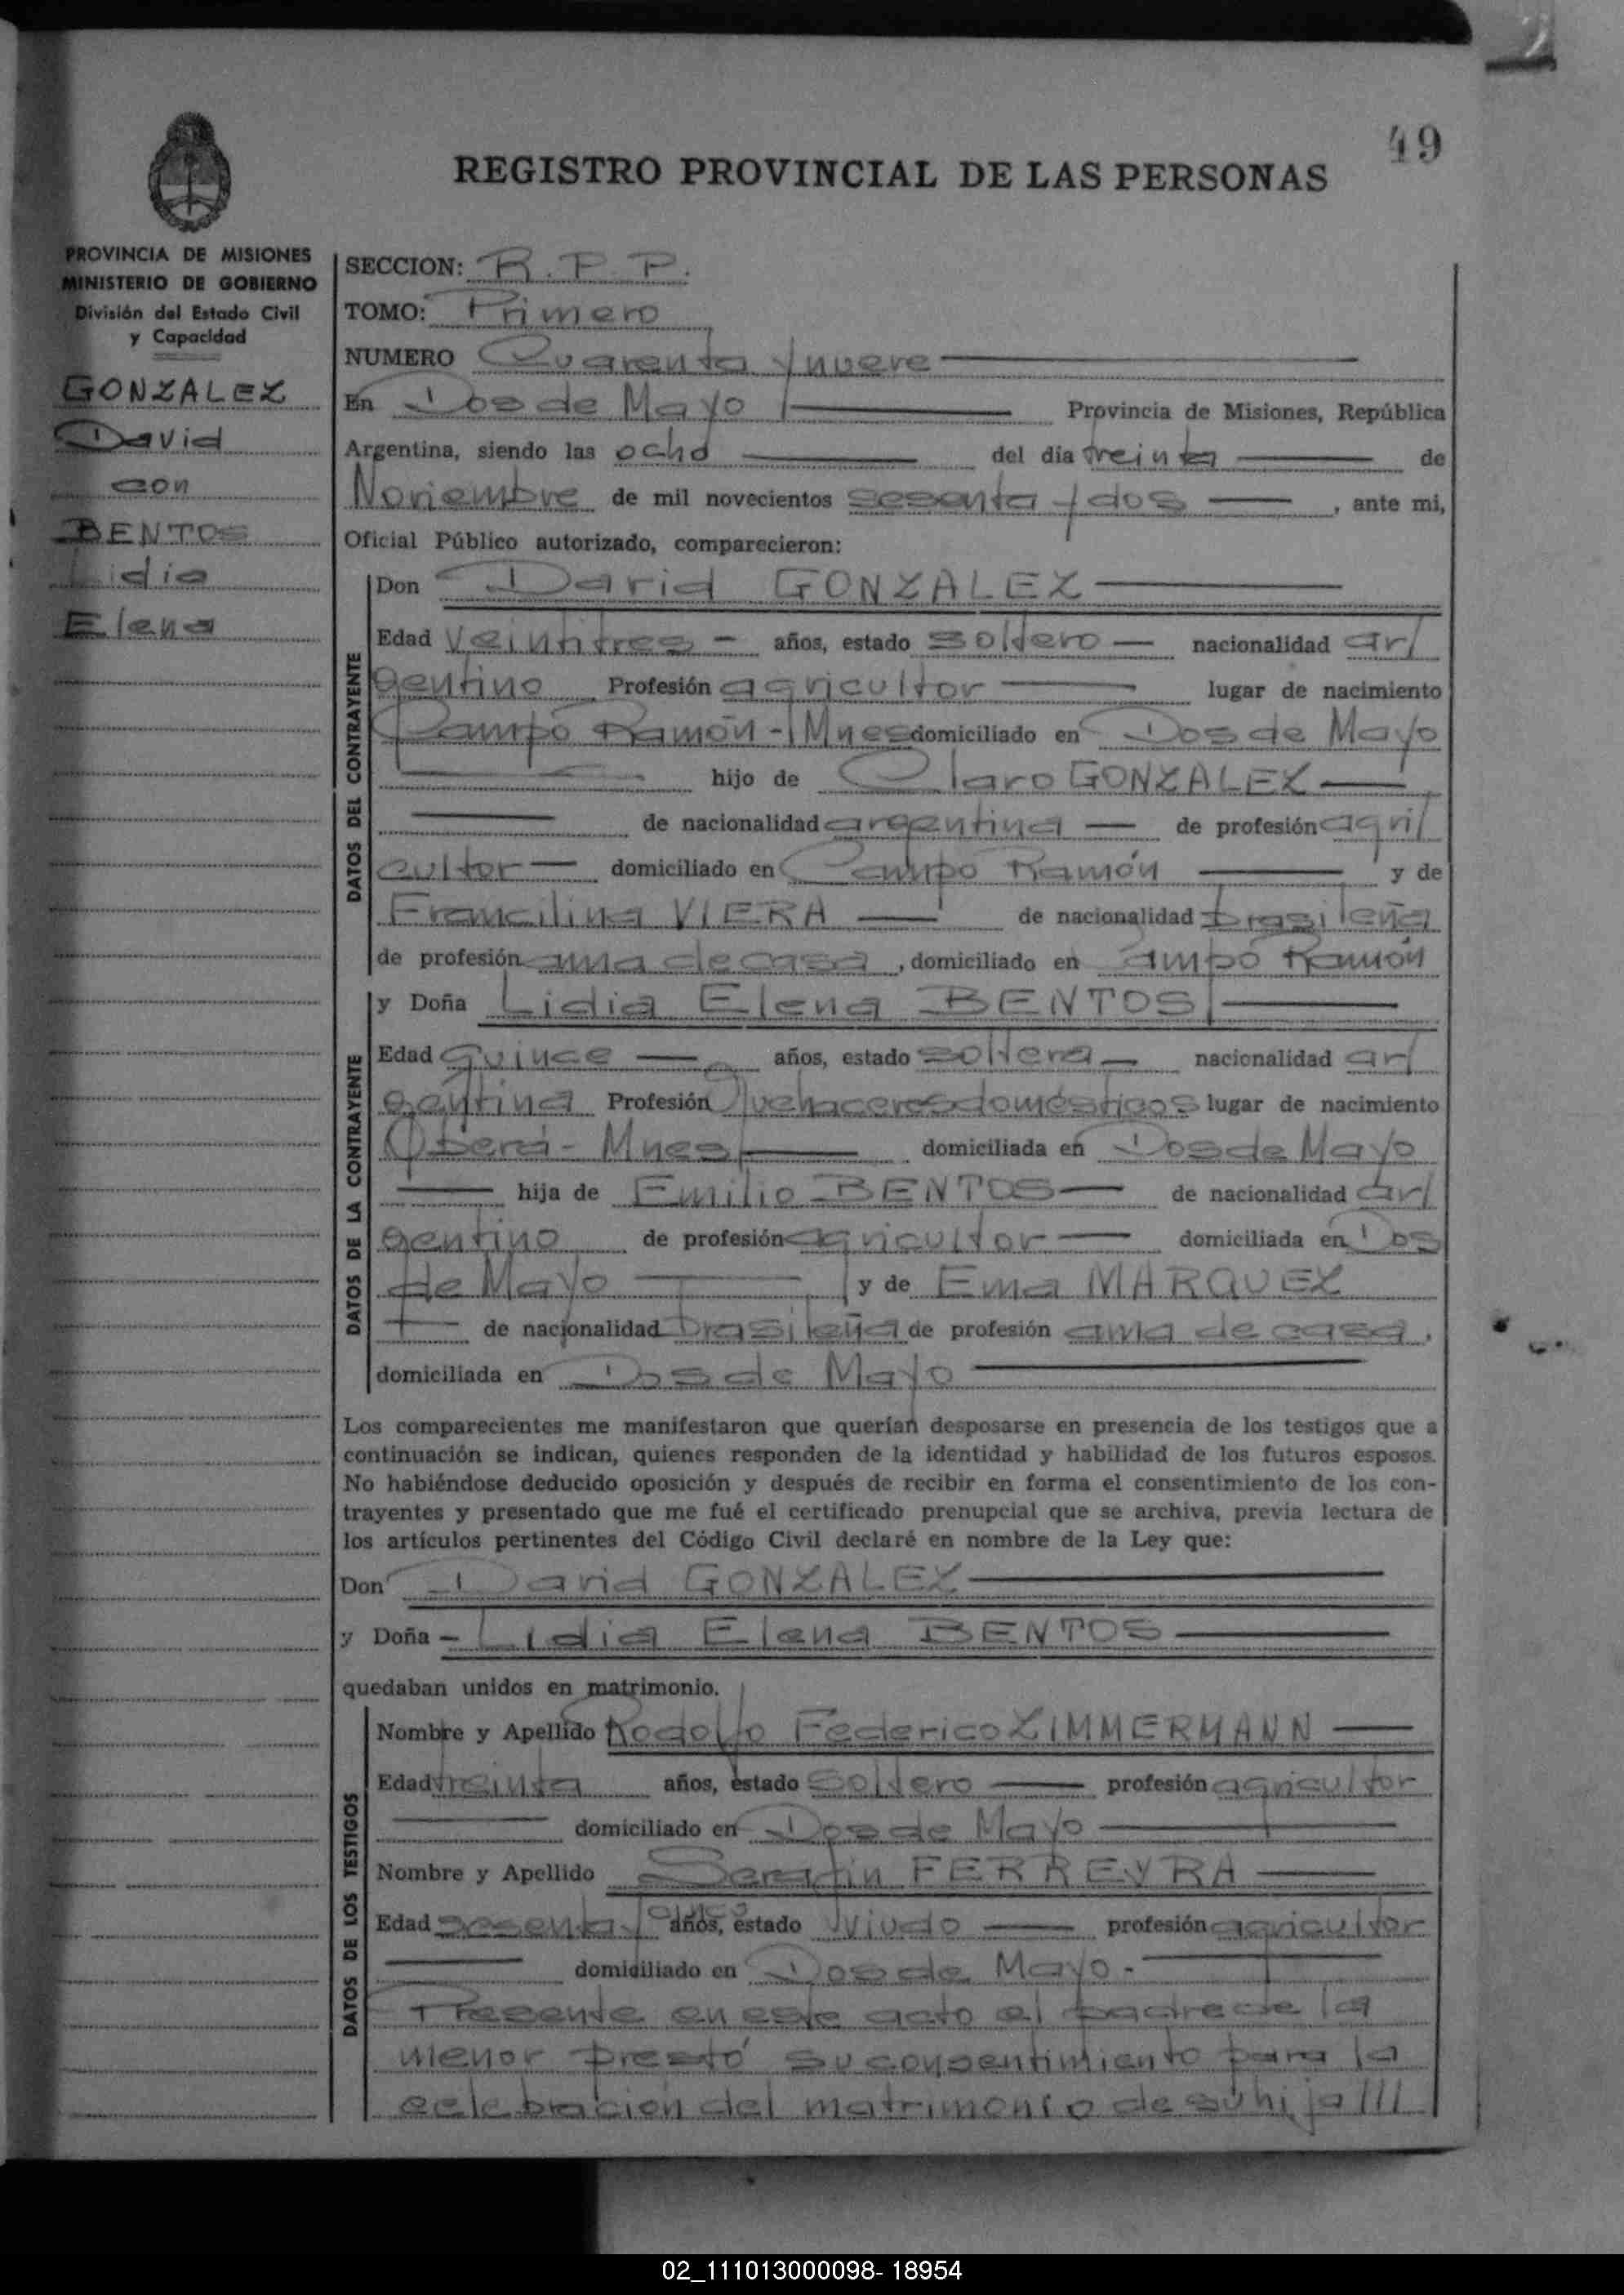 49
REGISTRO PROVINCIAL DE LAS PERSONAS
PROVINCIA DE MISIONES
MINISTERIO DE GOBIERNO
División del Estado Civil
y Capacidad
GONZALEZ
David
con
BENTOS
Lidia
Elena
SECCION: R.P.P.
TOMO: Primero
NUMERO Cuarenta y nueve
En Dos de Mayo Provincia de Misiones, República
Argentina, siendo las ocho del día treinta de
Noviembre de mil novecientos sesenta y dos, ante mi,
Oficial Público autorizado, comparecieron:
DATOS DEL CONTRAYENTE
Don David GONZALEZ
Edad veintitres - años, estado soltero nacionalidad ar/
gentino Profesión agricultor lugar de nacimiento
Campo Ramón - Mnes domiciliado en Dos de Mayo
hijo de Claro GONZALEZ
de nacionalidad argentina de profesión agri/
cultor domiciliado en Campo Ramón y de
Francilina VIERA de nacionalidad brasileña
de profesión ama de casa, domiciliado en Campo Ramón
DATOS DE LA CONTRAYENTE
y Doña Lidia Elena BENTOS
Edad Quince años, estado soltera nacionalidad ar/
gentina Profesión Quehaceres domésticos lugar de nacimiento
Oberá - Mnes domiciliada en Dos de Mayo
hija de Emilio BENTOS de nacionalidad ar/
gentino de profesión agricultor domiciliada en Dos
de Mayo y de Ema MARQUEZ
de nacionalidad brasileña de profesión ama de casa,
domiciliada en Dos de Mayo
Los comparecientes me manifestaron que querían desposarse en presencia de los testigos que a
continuación se indican, quienes responden de la identidad y habilidad de los futuros esposos.
No habiéndose deducido oposición y después de recibir en forma el consentimiento de los con-
trayentes y presentado que me fué el certificado prenupcial que se archiva, previa lectura de
los artículos pertinentes del Código Civil declaré en nombre de la Ley que:
Don David GONZALEZ
y Doña - Lidia Elena BENTOS
quedaban unidos en matrimonio.
DATOS DE LOS TESTIGOS
Nombre y Apellido Rodolfo Federico ZIMMERMANN
Edad treinta años, estado soltero profesión agricultor
domiciliado en Dos de Mayo
Nombre y Apellido Serafin FERREYRA
Edad sesenta y cinco años, estado viudo profesión agricultor
domiciliado en Dos de Mayo.
Presente en este acto el padre de la
menor prestó su consentimiento para la
celebración del matrimonio de su hija ///
02_111013000098-18954